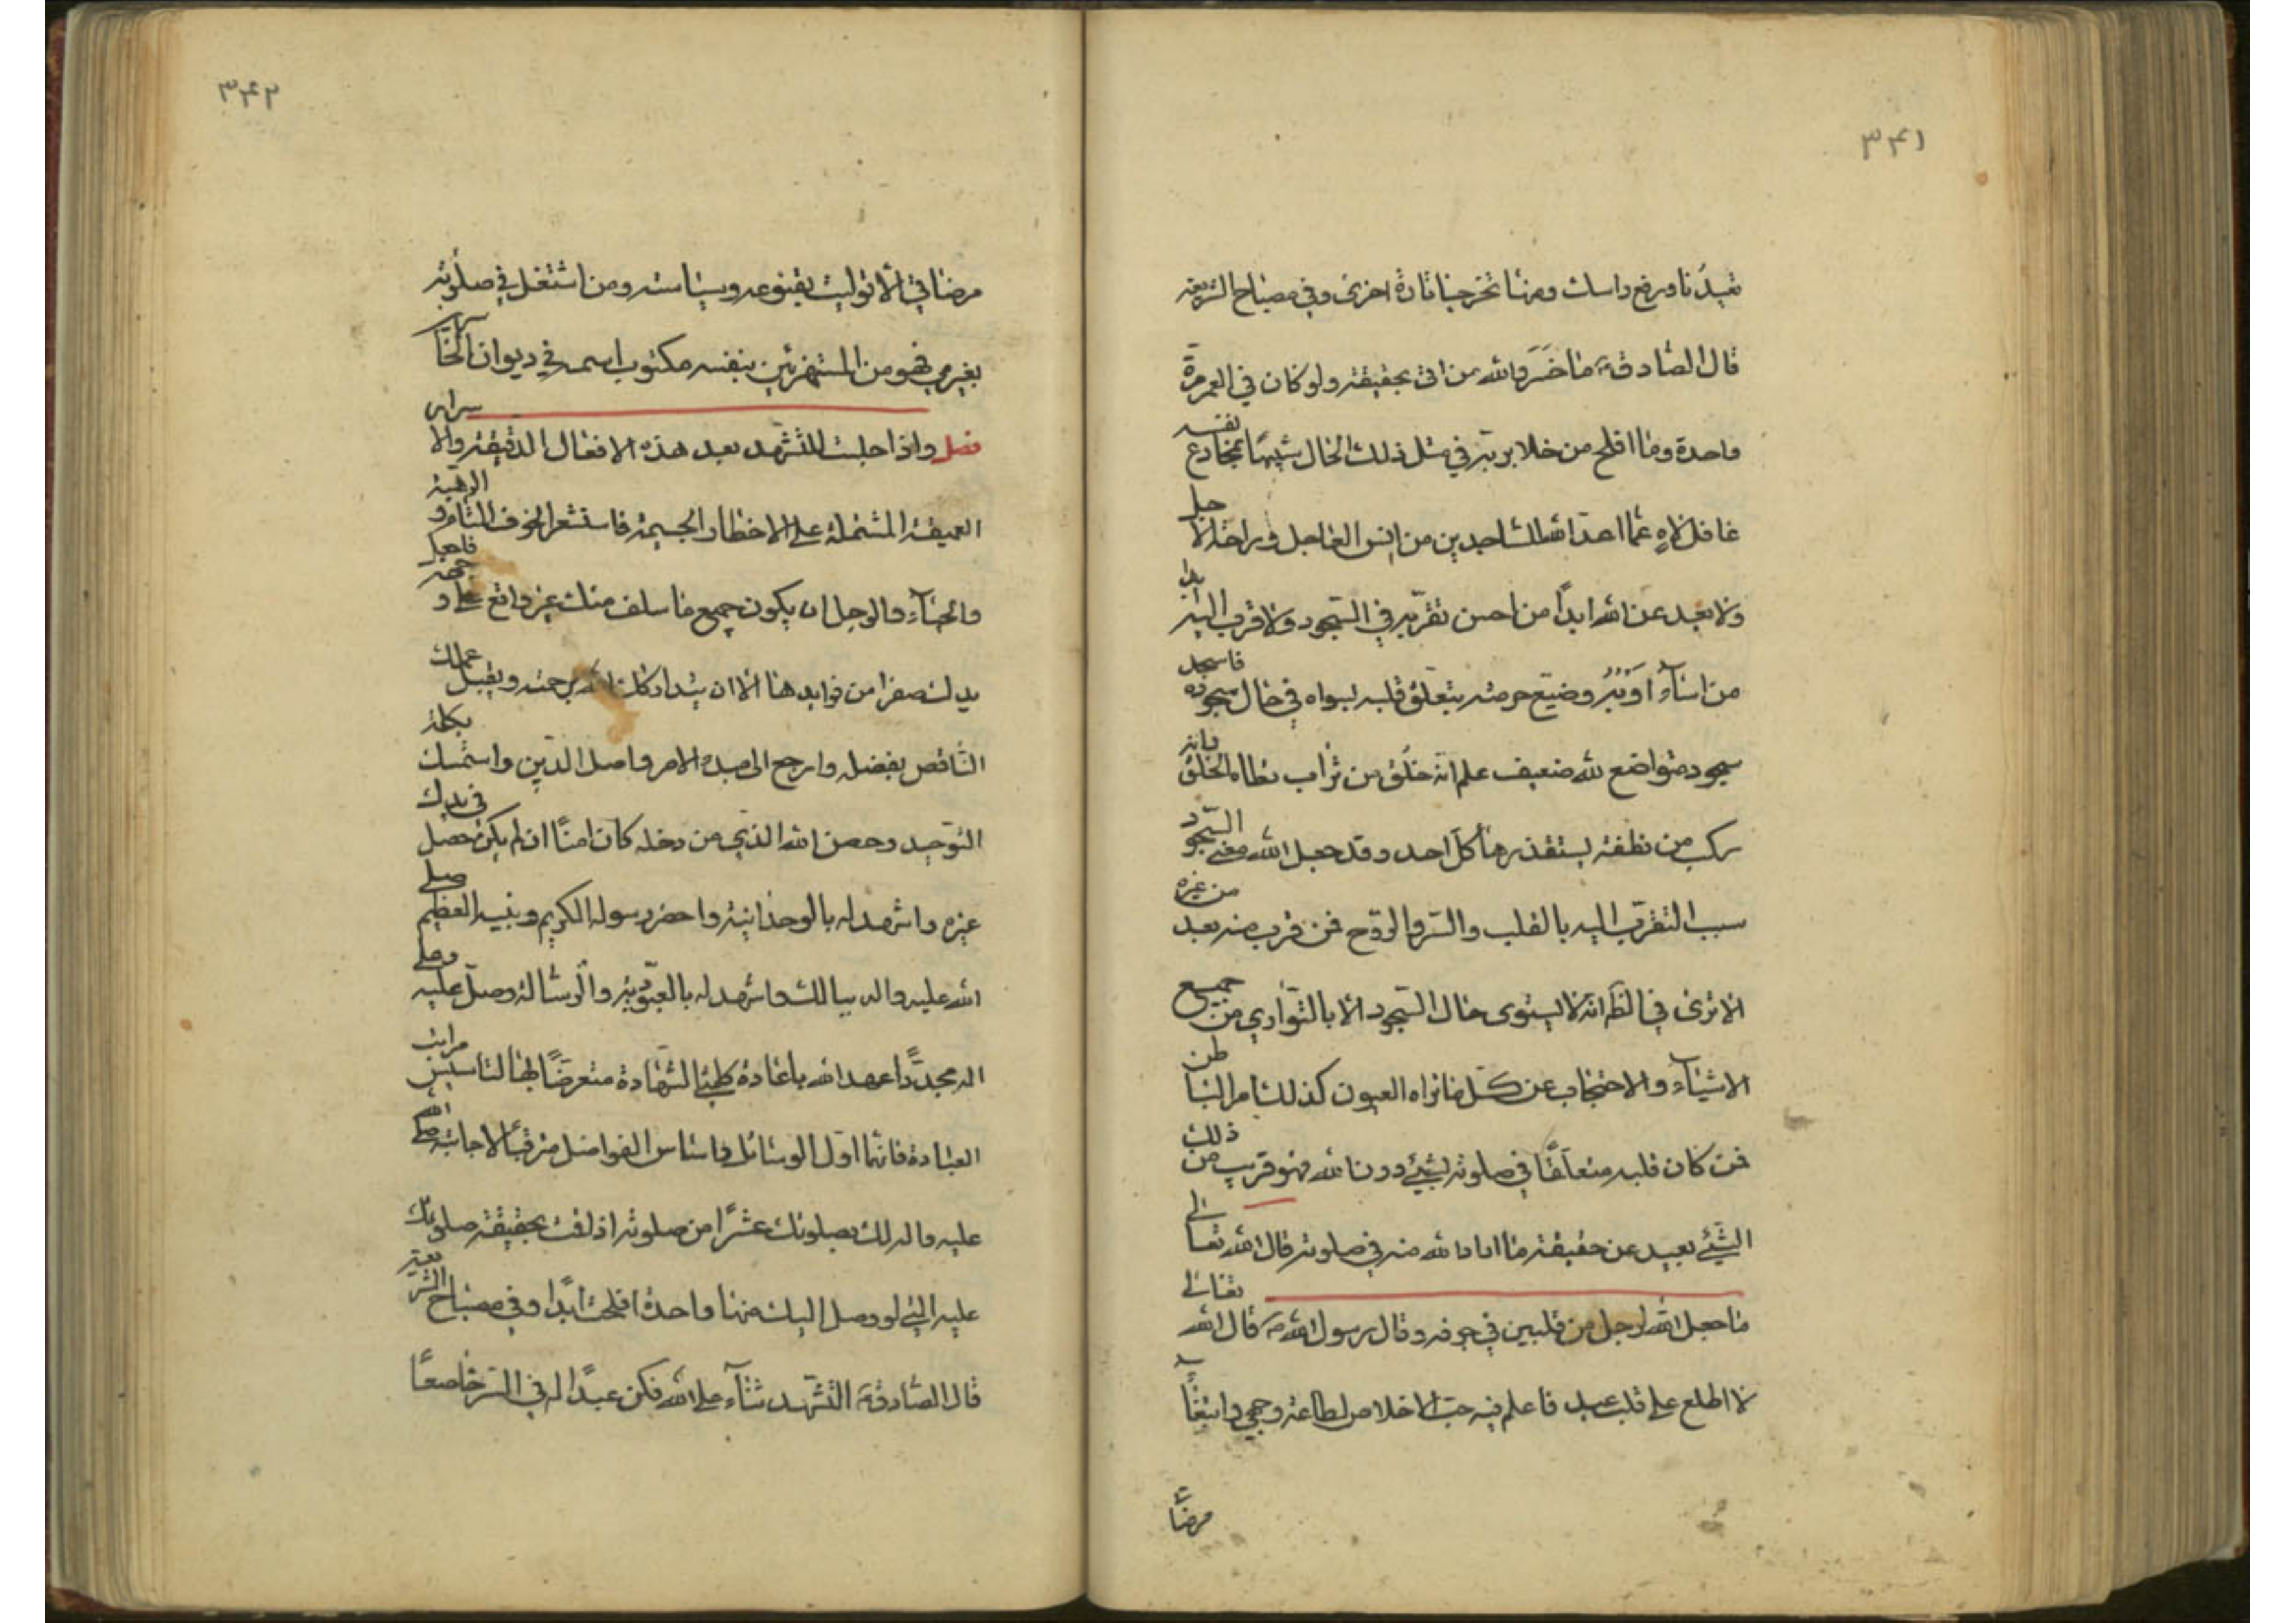 ٣٤١
تعيدنا ورفع راسك ومنها تخرجنا تارة اخرى وفي مصباح الشريعة
قال الصادق ع ما خسر والله من اتى بحقيقة ولو كان في العمر مرة
واحدة وما افلح من خلا بربه في مثل ذلك الحال شبيها بمخادع نفسه
غافل لاه عما اعد الله للساجدين من انس العاجل وراحة الاجل
ولا بعد عن الله ابدًا من احسن تقربه في السجود ولا قرب اليه ابدا
من اساء ادبه وضيع حرمته بتعلق قلبه بسواه في حال سجوده فاسجد
سجود متواضع لله ضعيف علم انه خلق من تراب يطاه الخلق وانه
ركب من نطفة يستقذرها كل احد وقد جعل الله معنى السجود
سبب التقرب اليه بالقلب والسر والروح فمن قرب منه بعد من غيره
الا ترى في الظ انه لا يستوى حال السجود الا بالتوارى من جميع
الاشياء والاحتجاب عن كل ما تراه العيون كذلك امر الباطن
فمن كان قلبه متعلقًا في صلوته بشيء دون الله فهو قريب من ذلك
الشيء بعيد عن حقيقة ما اراد الله منه في صلوته قال الله تعالى
ما جعل الله لرجل من قلبين في جوفه وقال رسول الله ص قال الله تعالى
لا اطلع على قلب عبد فاعلم فيه حب الاخلاص لطاعة وجهي وابتغاء
مرضا
٣٤٢
مرضاتي الا توليت تقويمه وسياسته ومن اشتغل في صلوته
بغيري فهو من المستهزئين بنفسه مكتوب اسمه في ديوان الخاسرين
فصل واذا جلست للتشهد بعد هذه الافعال الدقيقة والاسرار
العميقة المشتملة على الاخطار الجسيمة فاستشعر الخوف التام والرهبة
والحياء والوجل ان يكون جميع ما سلف منك غير واقع على وجهه فاجعل
يدك صفرا من فوايدها الا ان يتداركك الله برحمته ويقبل عملك
الناقص بفضله وارجع الى مبدء الامر واصل الدين واستمسك بكلمة
التوحيد وحصن الله الذي من دخله كان امنًا ان لم يكن حصل في يدك
غيره واشهد له بالوحدانية واحضر رسوله الكريم ونبيه العظيم صلى
الله عليه واله ببالك واشهد له بالعبودية والرسالة وصل عليه وعلى
اله مجددًا عهد الله باعادة كلمتي الشهادة متعرضًا لهما لتاسيس مراتب
العبادة فانهما اول الوسائل واساس الفواضل مترقبًا لاجابته صلى الله
عليه واله لك بصلوتك عشرًا من صلوته اذ لقت بحقيقة صلوتك
عليه التي لو وصل اليك منها واحدة افلحت ابدًا وفي مصباح الشريعة
قال الصادق ع التشهد ثناء على الله فكن عبدًا له في السر خاضعًا